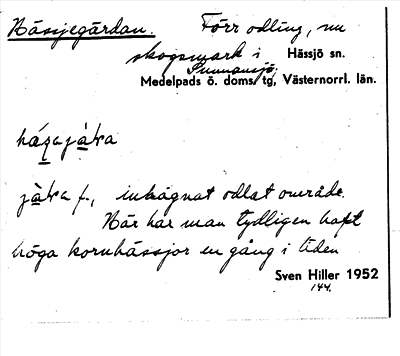 Hässjegärdan. Förr odling, nu
skogsmark i Hässjö sn.
Sunnansjö,
Medelpads ö. doms/tg, Västernorrl. län.
jà̱ka f., inhägnat odlat område.
Här har man tydligen haft
höga kornhässjor en gång i tiden
Sven Hiller 1952
144.